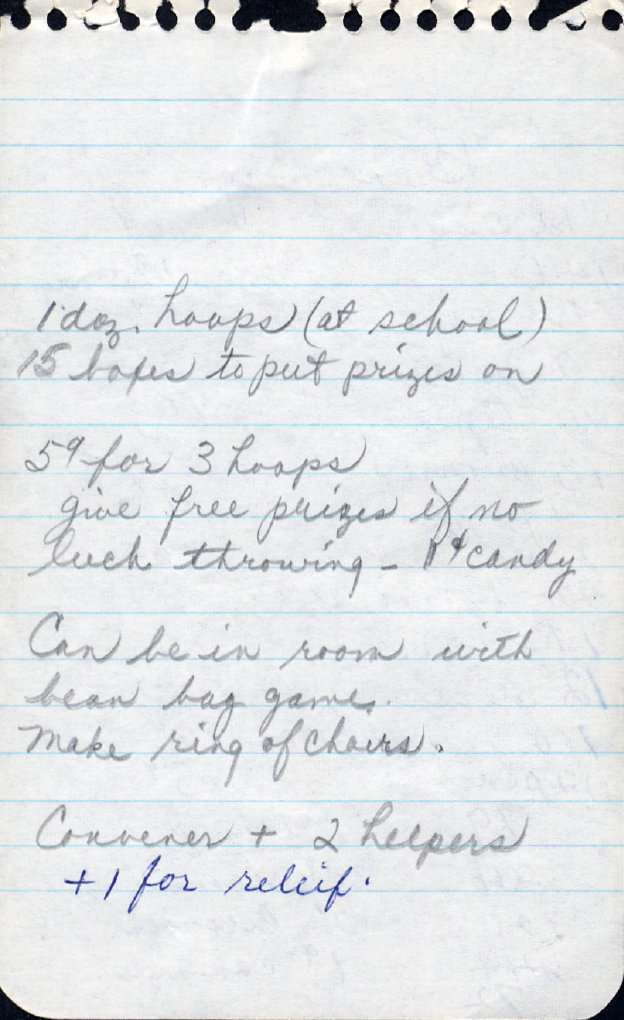 1 doz. hoops (at school)
15 boxes to put prizes on
5¢ for 3 hoops
give free prizes if no
luck throwing - 1¢ candy
Can be in room with
bean bag game.
Make ring of chairs.
Convener + 2 helpers
+ 1 for releif.